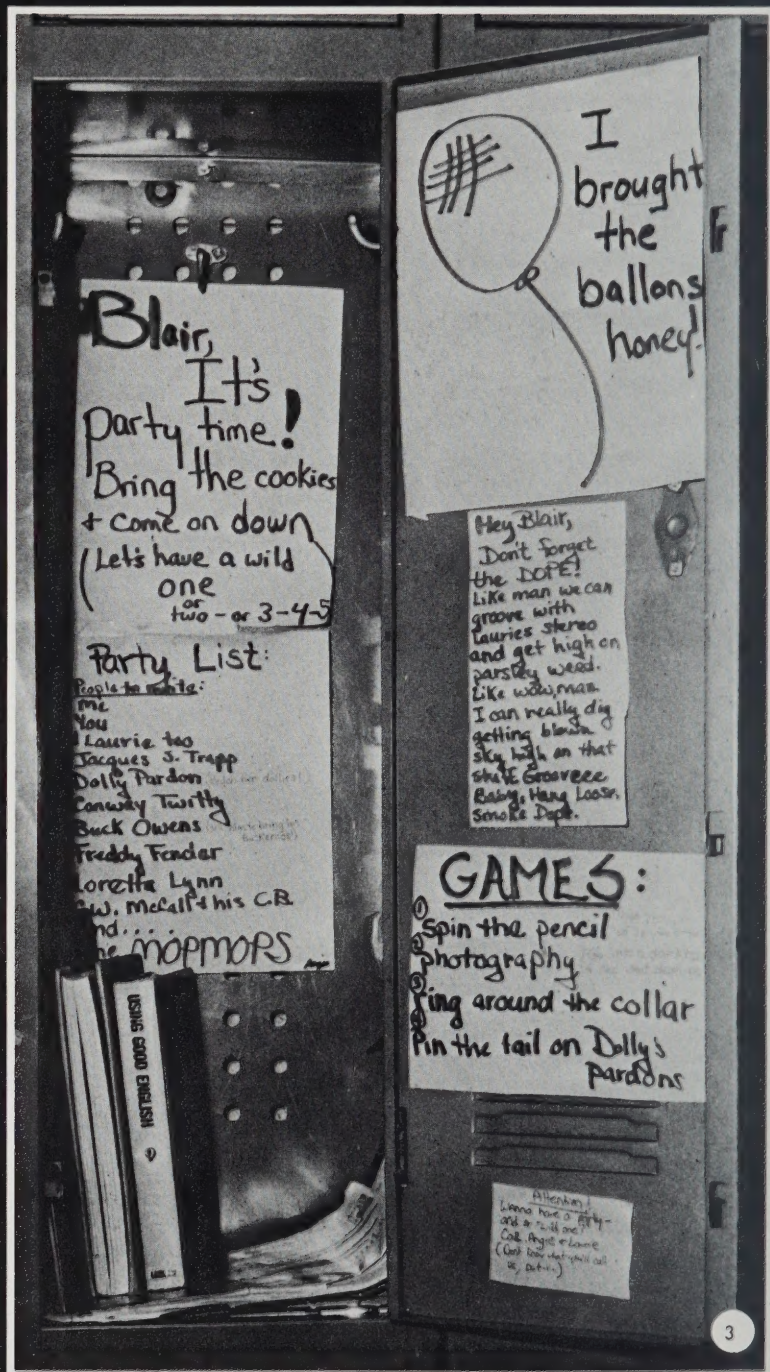 Blair,
It's
party time!
Bring the cookies
+ come on down
(Let's have a wild
one
or
two - or 3-4-5
Party List:
People to invite:
Me
You
Laurie too
Jacques S. Trapp
Dolly Pardon
Conway Twitty
Buck Owens
Freddy Fender
Loretta Lynn
C.W. McCall & his C.B.
And....
The MOPMOPS
USING GOOD ENGLISH
I
brought
the
ballons
honey!
Hey Blair,
Don't forget
the DOPE!
Like man we can
groove with
Lauries stereo
and get high on
parsley weed.
Like wow, man
I can really dig
getting blown
sky high on that
stuff. Grooveee
Baby, Hang Loose.
Smoke Dope.
GAMES:
① Spin the pencil
② photography
③ ring around the collar
④ Pin the tail on Dolly's
pardons
Attention!
Wanna have a party-
and a wild one?
Call Angie & Laurie
(Don't know what you'll call
us, but...)
3